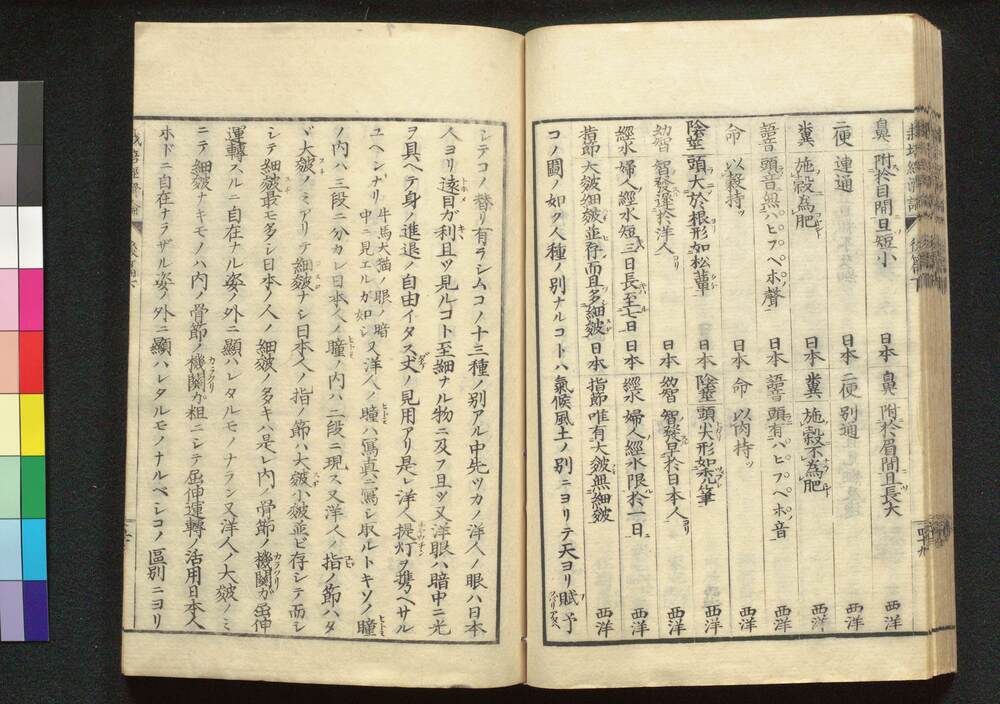 鼻 附於目間且短小 日本 鼻 附於眉間且長大 西洋
二便 連通 日本 二便 別通 西洋
糞 施穀為肥 日本 糞 施穀不為肥 西洋
語音 頭音無パピプペポ聲 日本 語音 頭有パピプペポ音 西洋
命 以穀持ツ 日本 命 以肉持ツ 西洋
陰莖 頭大於根形如松蕈 日本 陰莖 頭尖形如禿筆 西洋
幼智 智發達於洋人 日本 幼智 智發早於日本人 西洋
經水 婦人經水短三日長至七日 日本 經水 婦人經水限於一日 西洋
指節 大皴細皴並存而且多細皴 日本 指節 唯有大皴無細皴 西洋
コノ圖ノ如ク人種ノ別ナルコトハ氣候風土ノ別ニヨリテ天ヨリ賦予
シテコノ替リ有ラシムコノ十三種ノ別アル中先ツカノ洋人ノ眼ハ日本
人ヨリ遠目ガ利且ツ見ルコト至細ナル物ニ及フ且ツ又洋眼ハ暗中ニ光
ヲ具ヘテ身ノ進退ノ自由イタス丈ノ見用アリ是レ洋人提灯ヲ携ヘサル
ユヘンナリ 牛馬犬猫ノ眼ノ暗中ニ見エルガ如シ 又洋人ノ瞳ハ寫真ニ寫シ取ルトキソノ瞳
ノ内ハ三段ニ分カレ日本人ノ瞳ノ内ハ二段ニ現ス又洋人ノ指ノ節ハタ
ヾ大皴ノミアリテ細皴ナシ日本人ノ指ノ節ハ大皴小皴並ビ存シテ而シ
シテ細皴最モ多シ日本ノ人ノ細皴ノ多キハ是レ内ノ骨節ノ機関ガ屈伸
運轉スルニ自在ナル姿ノ外ニ顯ハレタルモノナラン又洋人ノ大皴ノミ
ニテ細皴ナキモノハ内ノ骨節ノ機関ガ粗ニシテ屈伸運轉ノ活用日本人
ホドニ自在ナラザル姿ノ外ニ顯ハレタルモノナルベシコノ區別ニヨリ